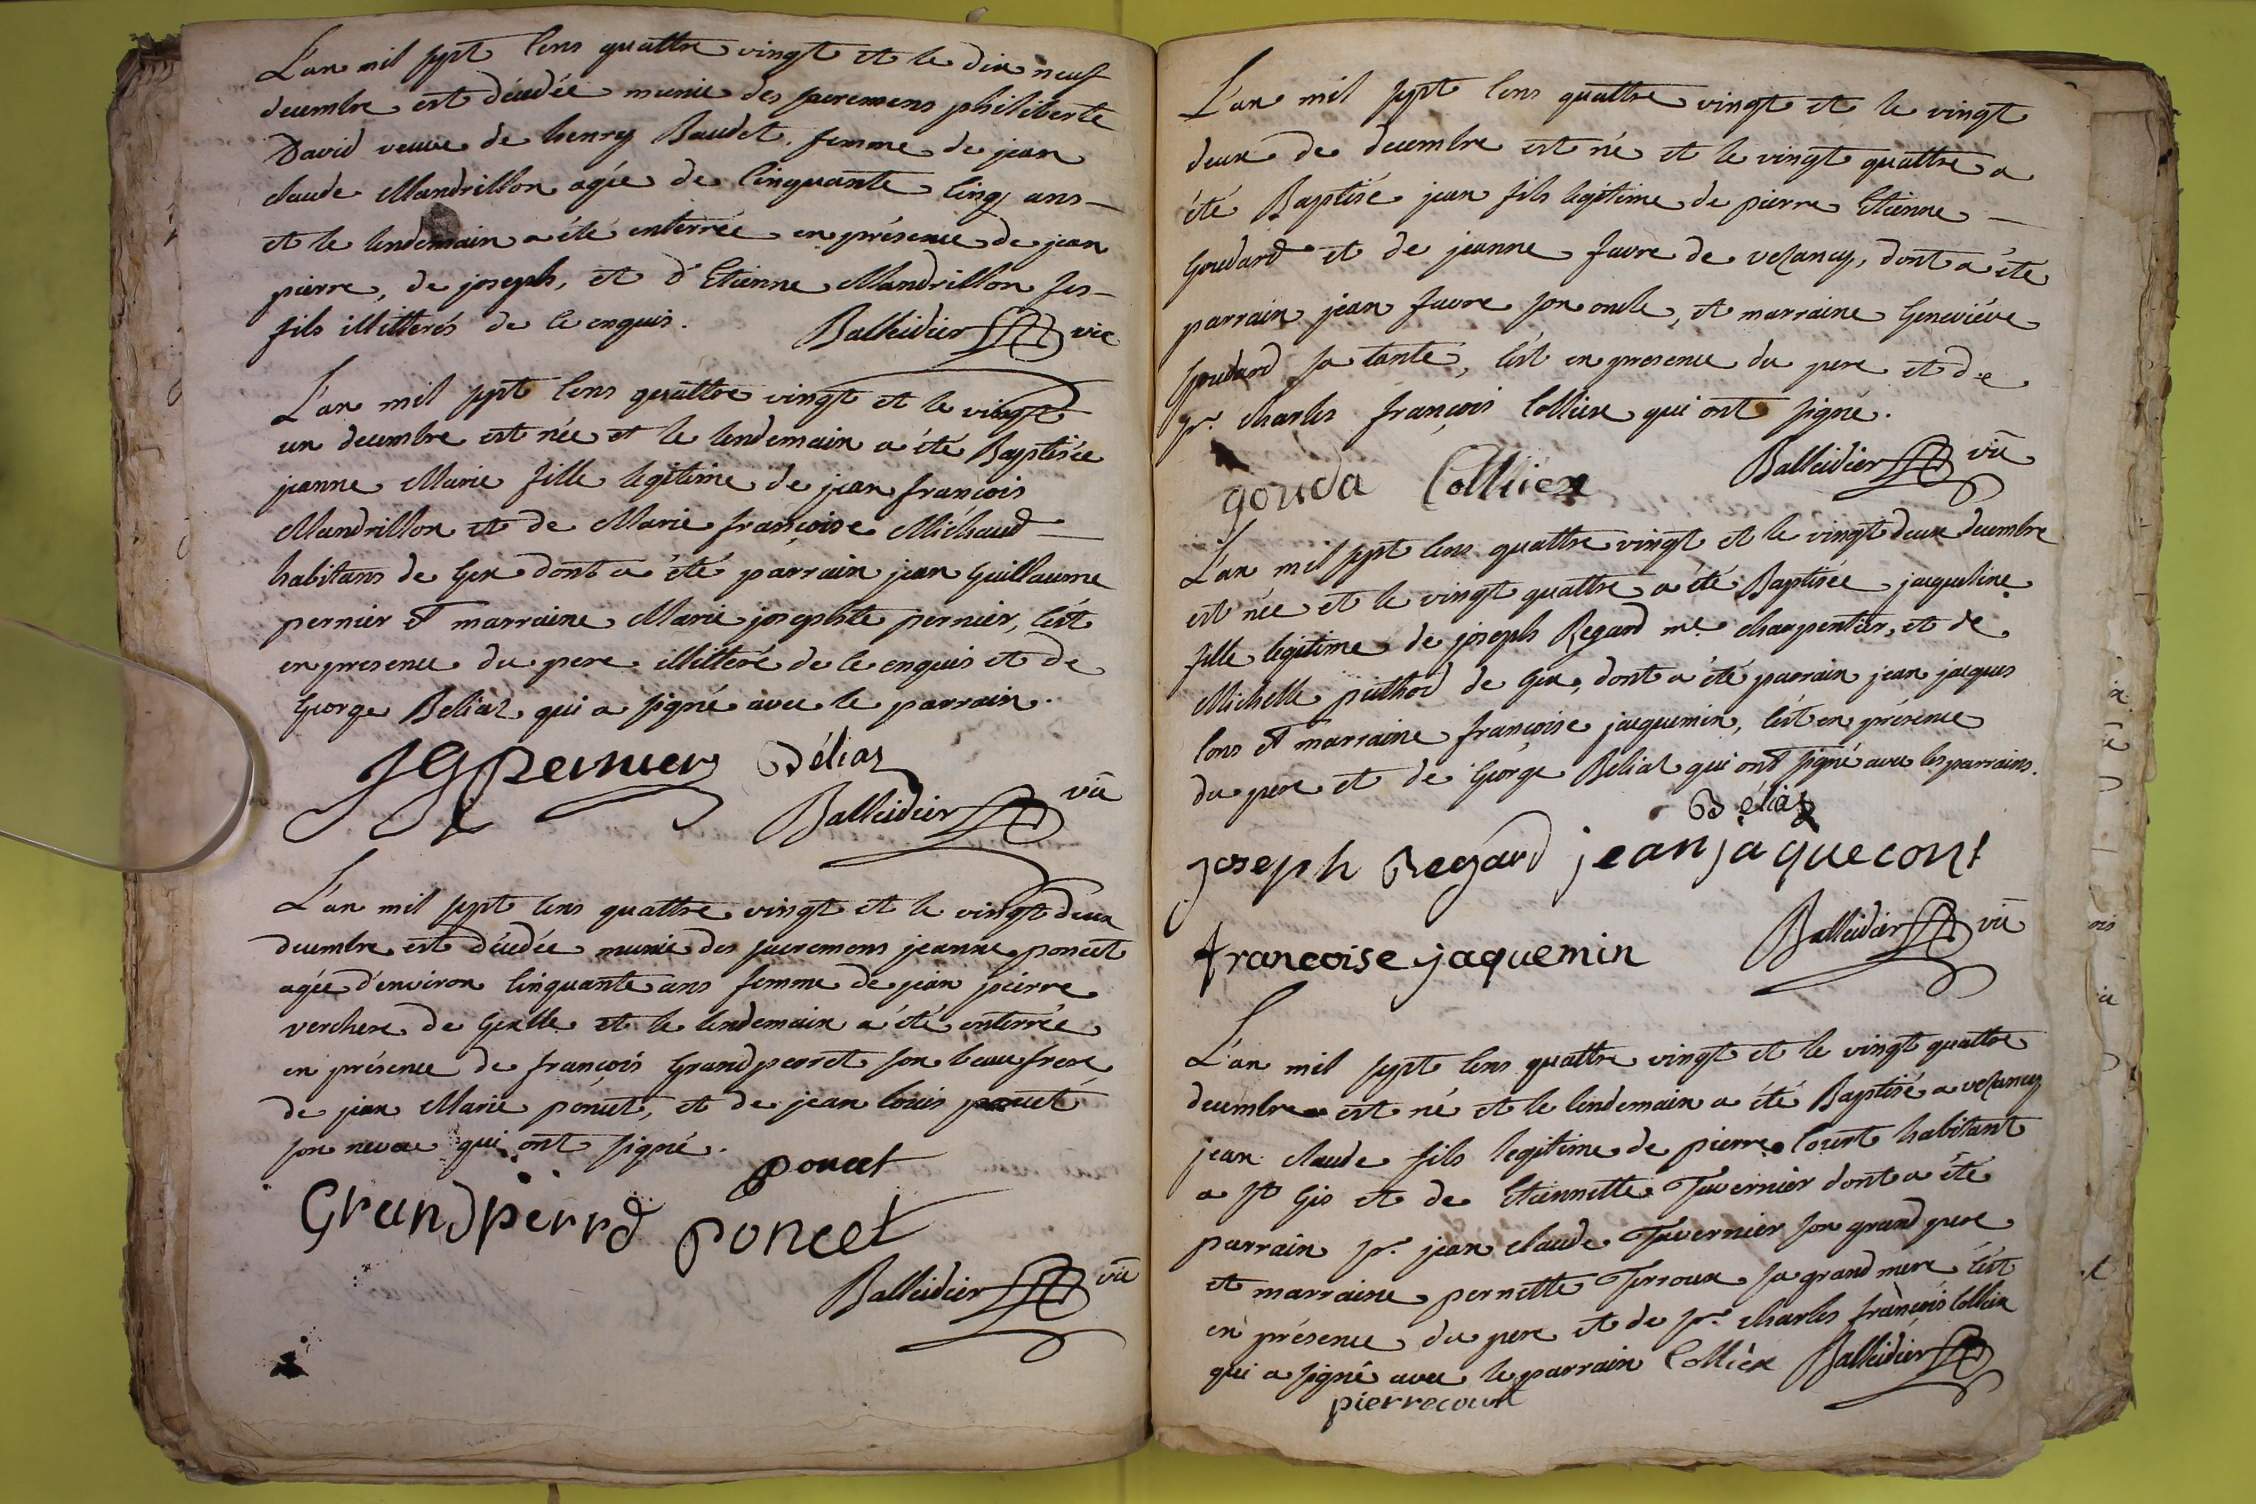 L'an mil sept cens quattre vingt et le dix neuf
decembre est décédée munie des sacremens philiberte
David veuve de henry Baudet, femme de jean
claude Mandrillon agée de cinquante cinq ans
et le lendemain a été enterrée en présence de jean
pierre, de joseph, et d'Etienne Mandrillon ses
fils illitterés de ce enquis. Balleidier vic
L'an mil sept cens quattre vingt et le vingt
un decembre est née et le lendemain a été Baptisée
jeanne Marie fille legitime de jean françois
Mandrillon et de Marie françoise Michaud
habitans de Gex dont a été parrain jean Guillaume
pernier et marraine Marie josephte pernier, c'est
en presence du pere illitteré de ce enquis et de
George Beliaz qui a signé avec le parrain.
JGPernier Béliaz
Balleidier vic
L'an mil sept cens quattre vingt et le vingt deux
decembre est décédée munie des sacremens jeanne poncet
agée d'environ cinquante ans femme de jean pierre
verchere de Gex et le lendemain a été enterrée
en présence de françois Grandperret son beau frere
de jean Marie poncet, et de jean louis poncet
son neveu qui ont signé.
poncet
Grandpierrd poncet
Balleidier vic
L'an mil sept cens quattre vingt et le vingt
deux de decembre est né et le vingt quattre a
été Baptisé jean fils legitime de pierre Etienne
Goudard et de jeanne favre de vezancy, dont a été
parrain jean favre son oncle, et marraine Geneviéve
Goudard sa tante, c'est en presence du pere et de
sr. charles françois Colliex qui ont signé.
gouda Colliiex Balleidier vic
L'an mil sept cens quattre vingt et le vingt deux decembre
est née et le vingt quattre a été Baptisée jacqueline
fille legitime de joseph Regard me. charpentier, et de
Michelle puthod de Gex, dont a été parrain jean jacques
Cons et marraine françoise jacquemin, c'est en présence
du pere et de George Béliaz qui ont signé avec les parrains.
Béliaz
joseph Regard jeanjaquecont
francoise jaquemin Balleidier vic
L'an mil sept cens quattre vingt et le vingt quattre
decembre est né et le lendemain a été Baptisé a vezancy
jean claude fils legitime de pierre Court habitant
a st Gis et de Etiennette Tavernier dont a été
parrain sr. jean claude Tavernier son grand pere
et marraine pernette Terroux sa grand mere c'est
en présence du pere et de sr. charles françois Colliex
qui a signé avec le parrain Colliex Balleidier
pierrecourt